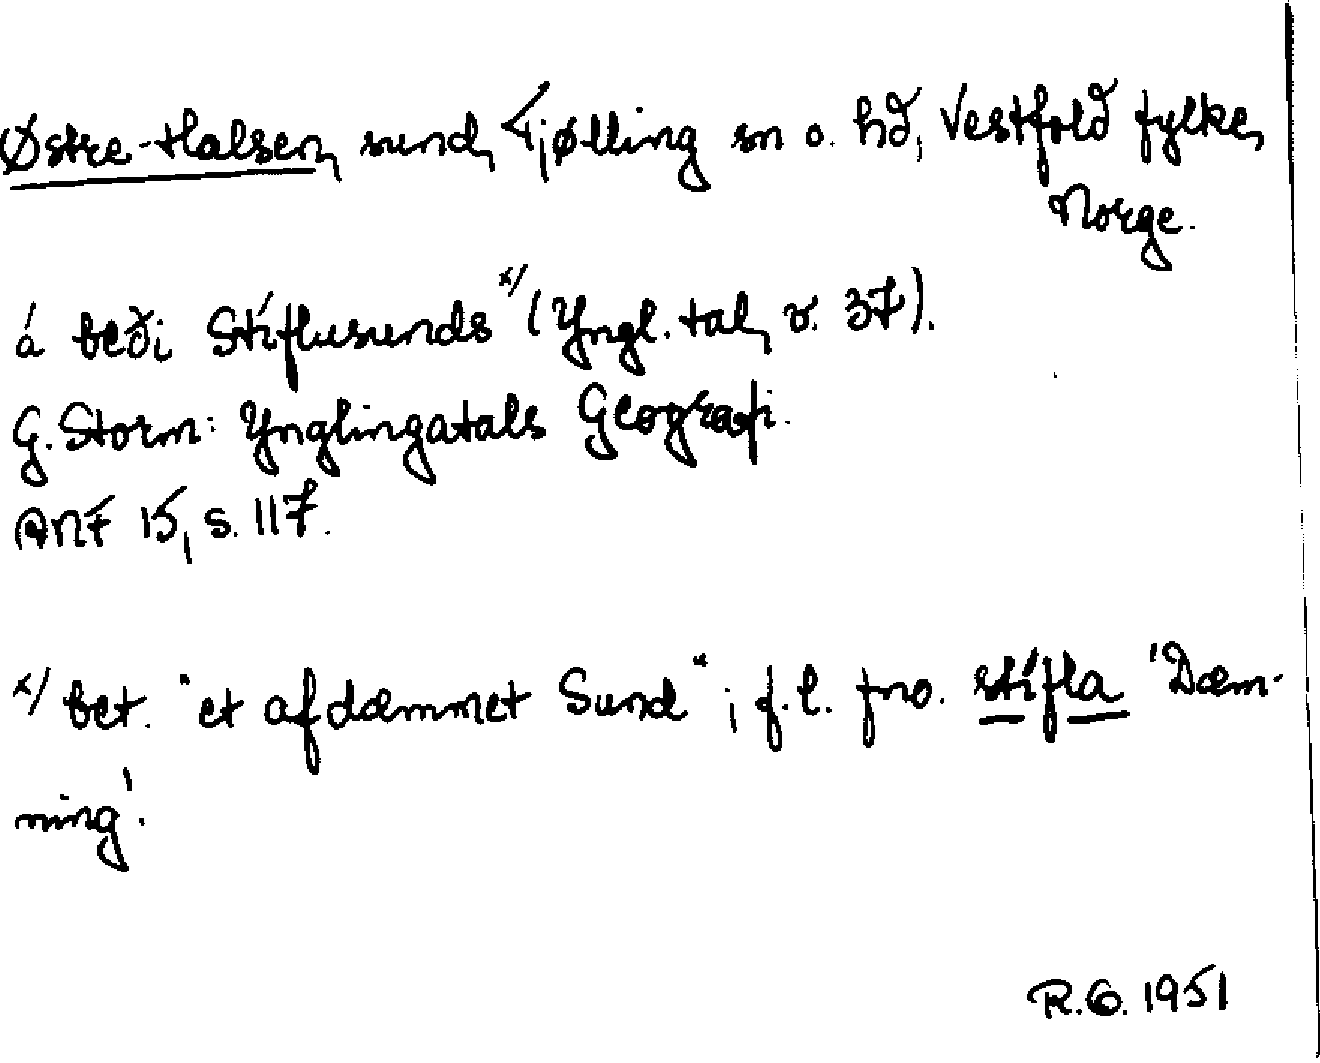 Østre-Halsen, sund, Tjølling sn o. hd, Vestfold fylke,
Norge.
á beði Stíflusunds x/ (Yngl. tal, v. 37).
G. Storm: Ynglingatals Geografi.
ANF 15, s. 117.
x/ bet. "et afdæmmet Sund"; f.l. fno. stífla 'Dæm-
ning'.
R.O. 1951